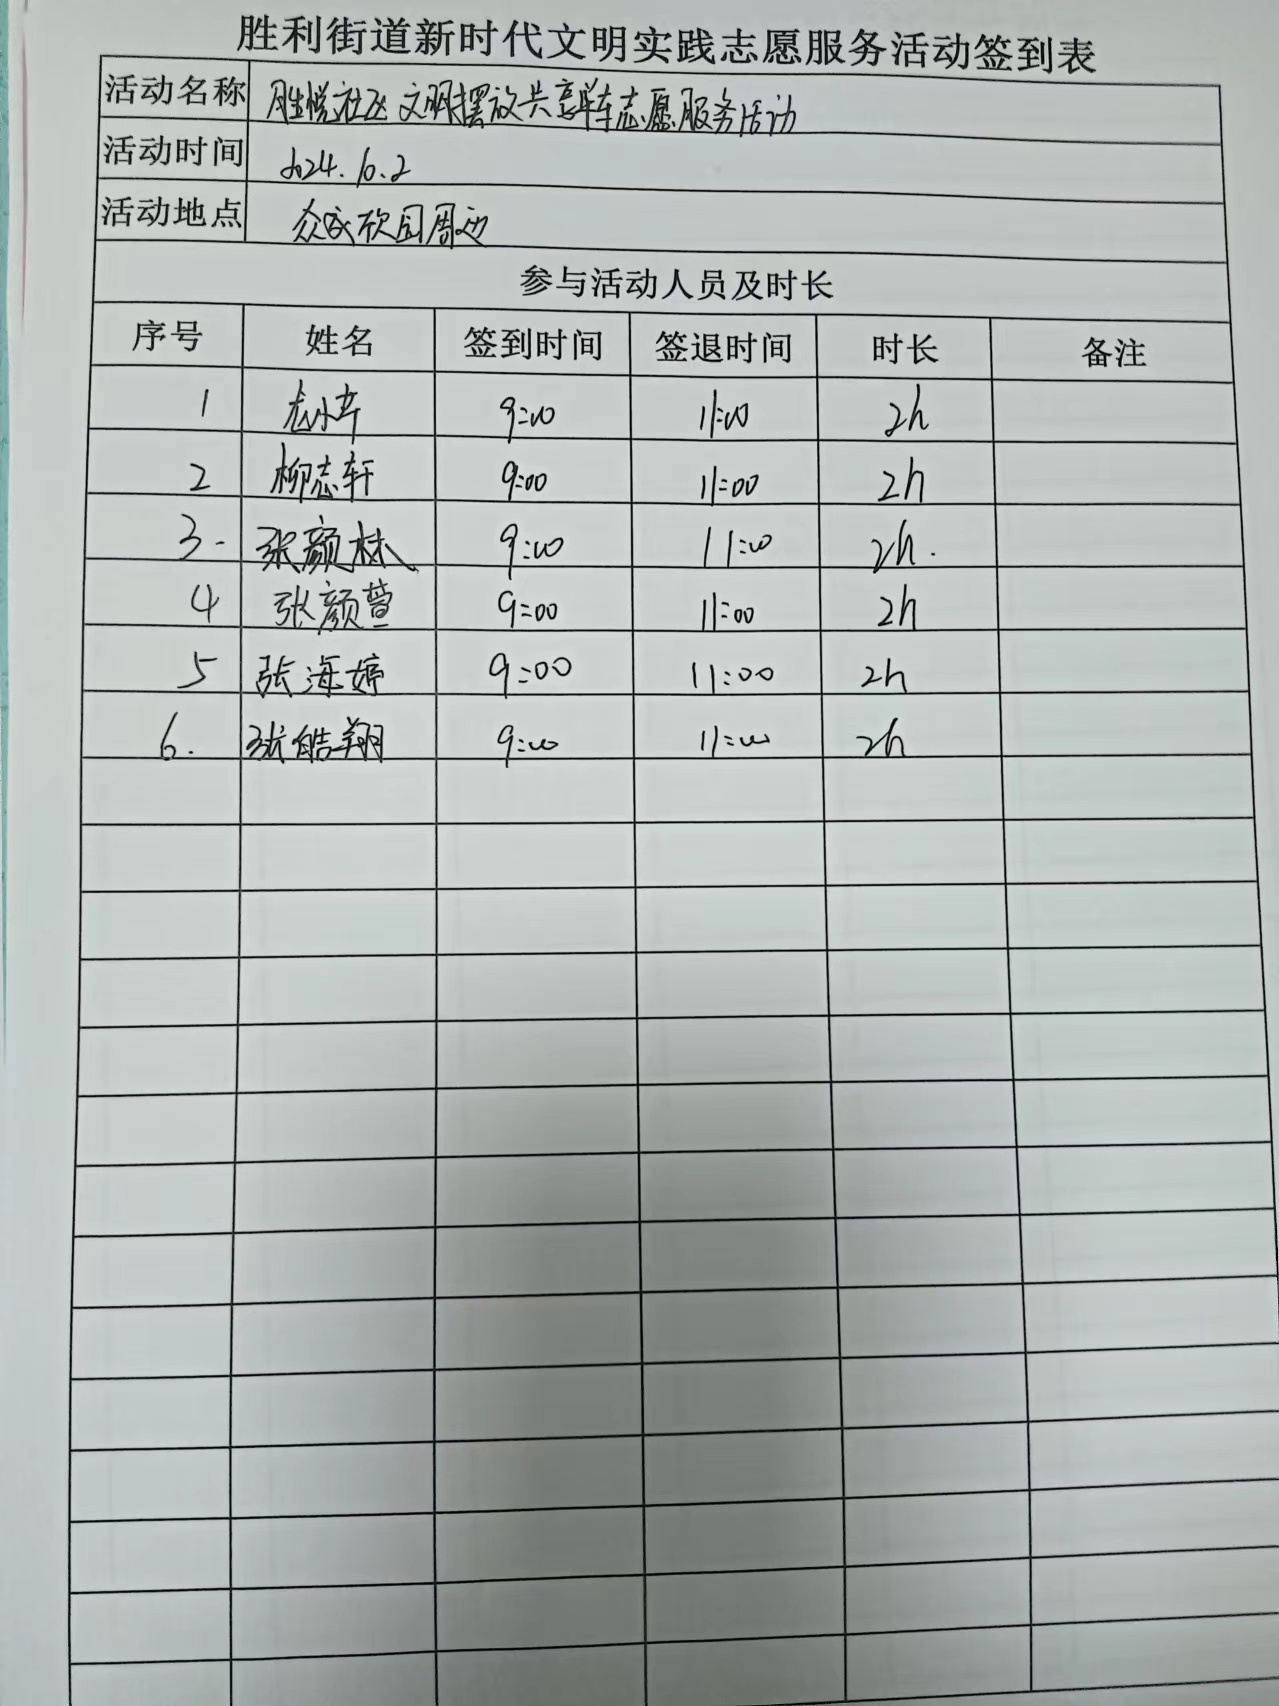 胜利街道新时代文明实践志愿服务活动签到表
活动名称 胜悦社区文明摆放共享单车志愿服务活动
活动时间 2024.6.2
活动地点 众成欣园周边
参与活动人员及时长
序号 姓名 签到时间 签退时间 时长 备注
1 9:00 11:00 2h
2 柳志轩 9:00 11:00 2h
3. 张颜林 9:00 11:00 2h.
4 张颜萱 9:00 11:00 2h
5 张海婷 9:00 11:00 2h
6. 张皓翔 9:00 11:00 2h